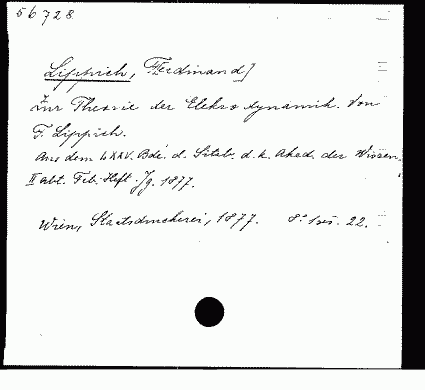 56728
Lippich, Ferdinand]
Zur Theorie der Elektrodynamik. Von
F. Lippich.
Aus dem LXXV. Bde. d. Sitzb. d. k. Akad. der Wissen.
II abt. Feb. Heft. Jg. 1877.
Wien, Staatsdruckerei, 1877. 8° 22.